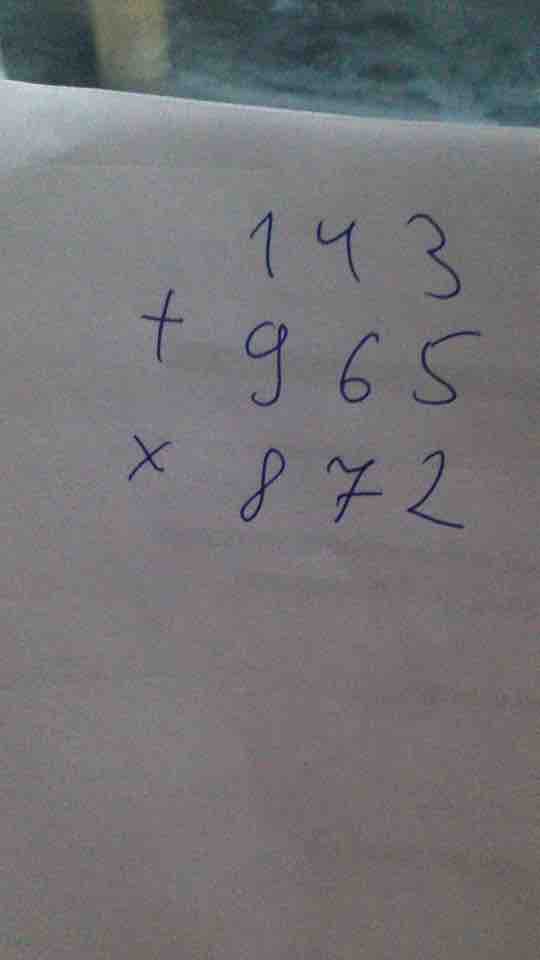 143
+ 965
x 872